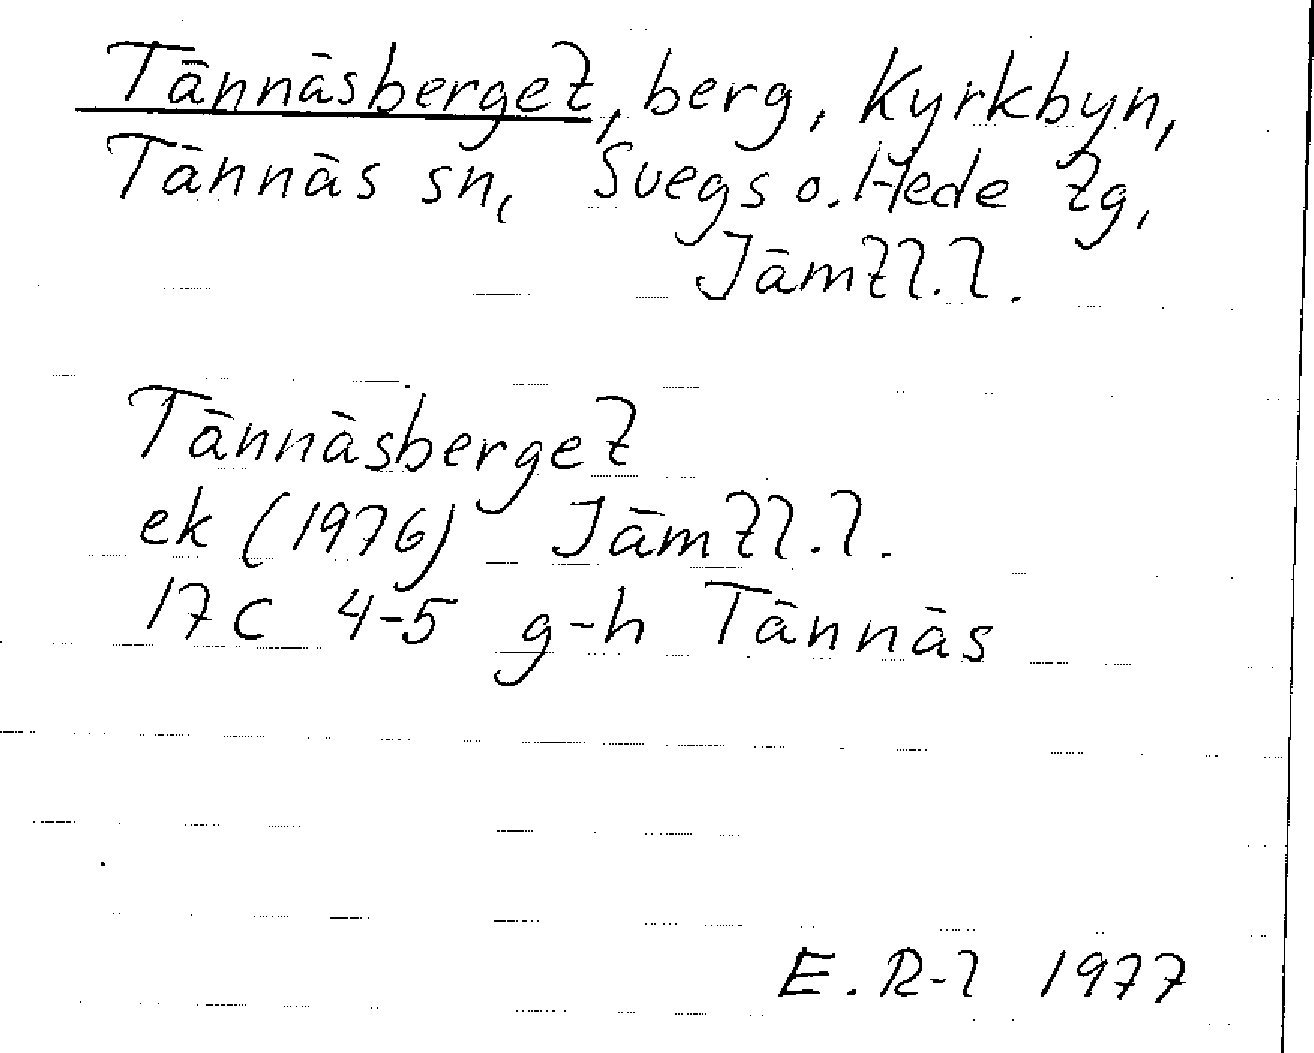 Tännäsberget, berg, Kyrkbyn,
Tännäs sn, Svegs o. Hede tg,
Jämtl. l.
Tännäsberget
ek (1976) Jämtl. l.
17C 4-5 g-h Tännäs
E. R-l 1977